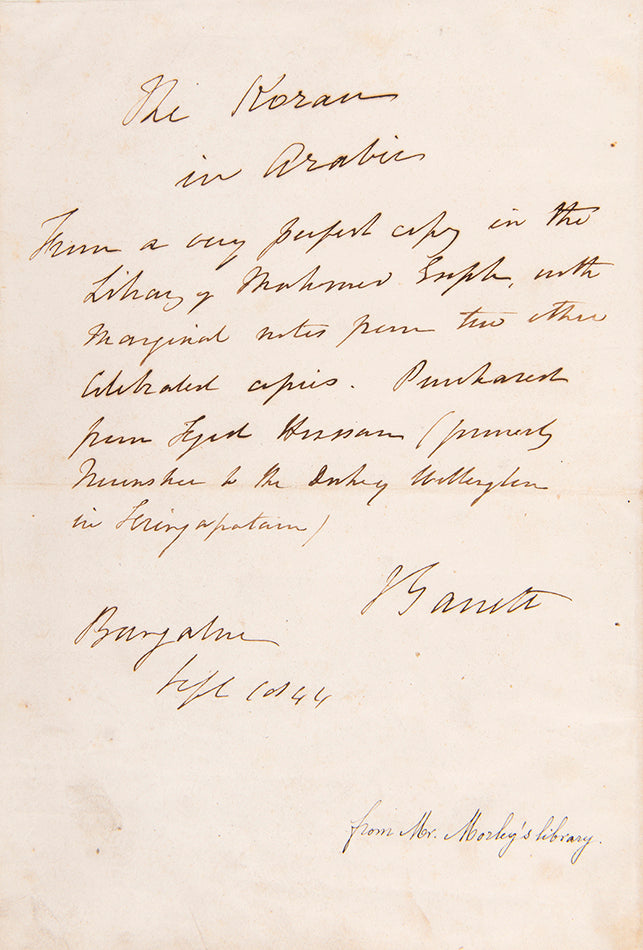 The Koran
in Arabic
From a very perfect copy in the
Library of Mahomed , with
Marginal notes from two other
Celebrated copies. Purchased
from Syed Hussan (formerly
Moonshee to the Duke of Wellington
in Seringapatam)
J Garrett
Bangalore
Sept 1844
from Mr. Morley's library.